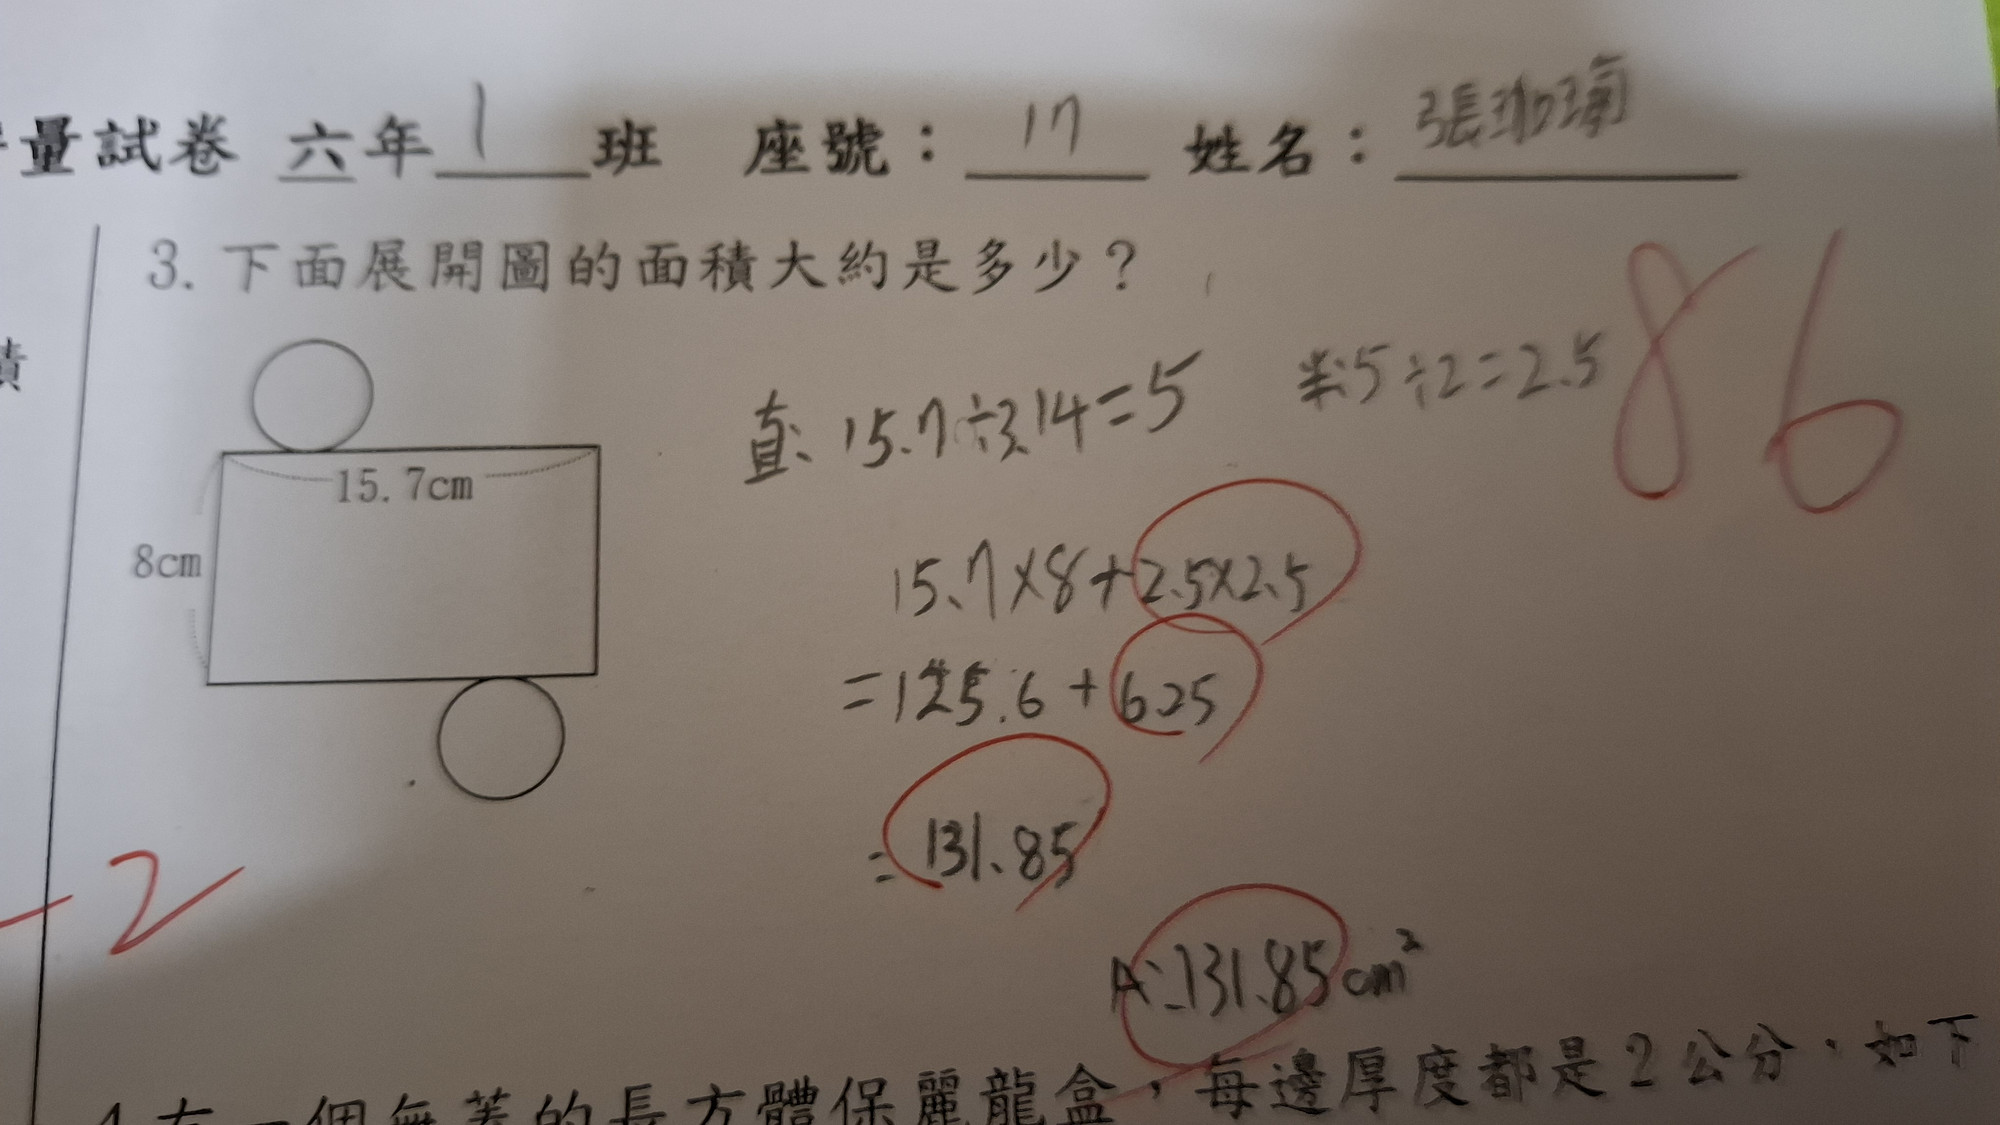 量試卷 六年 1 班 座號： 17 姓名： 張
3. 下面展開圖的面積大約是多少？
積
直: 15.7÷3.14=5 半:5÷2=2.5
86
15.7cm
8cm
15.7×8+2.5×2.5
=125.6+6.25
=131.85
-2
A:131.85cm²
4.有一個無蓋的長方體保麗龍盒，每邊厚度都是2公分，如下